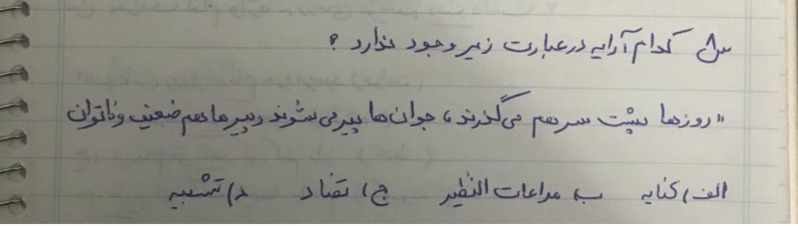 س۸ کدام آرایه در عبارت زیر وجود ندارد ؟
"روزها پشت سر هم می‌گذرند، جوان‌ها پیر می‌شوند و پیرها هم ضعیف و ناتوان
الف) کنایه ب) مراعات النظیر ج) تضاد د) تشبیه